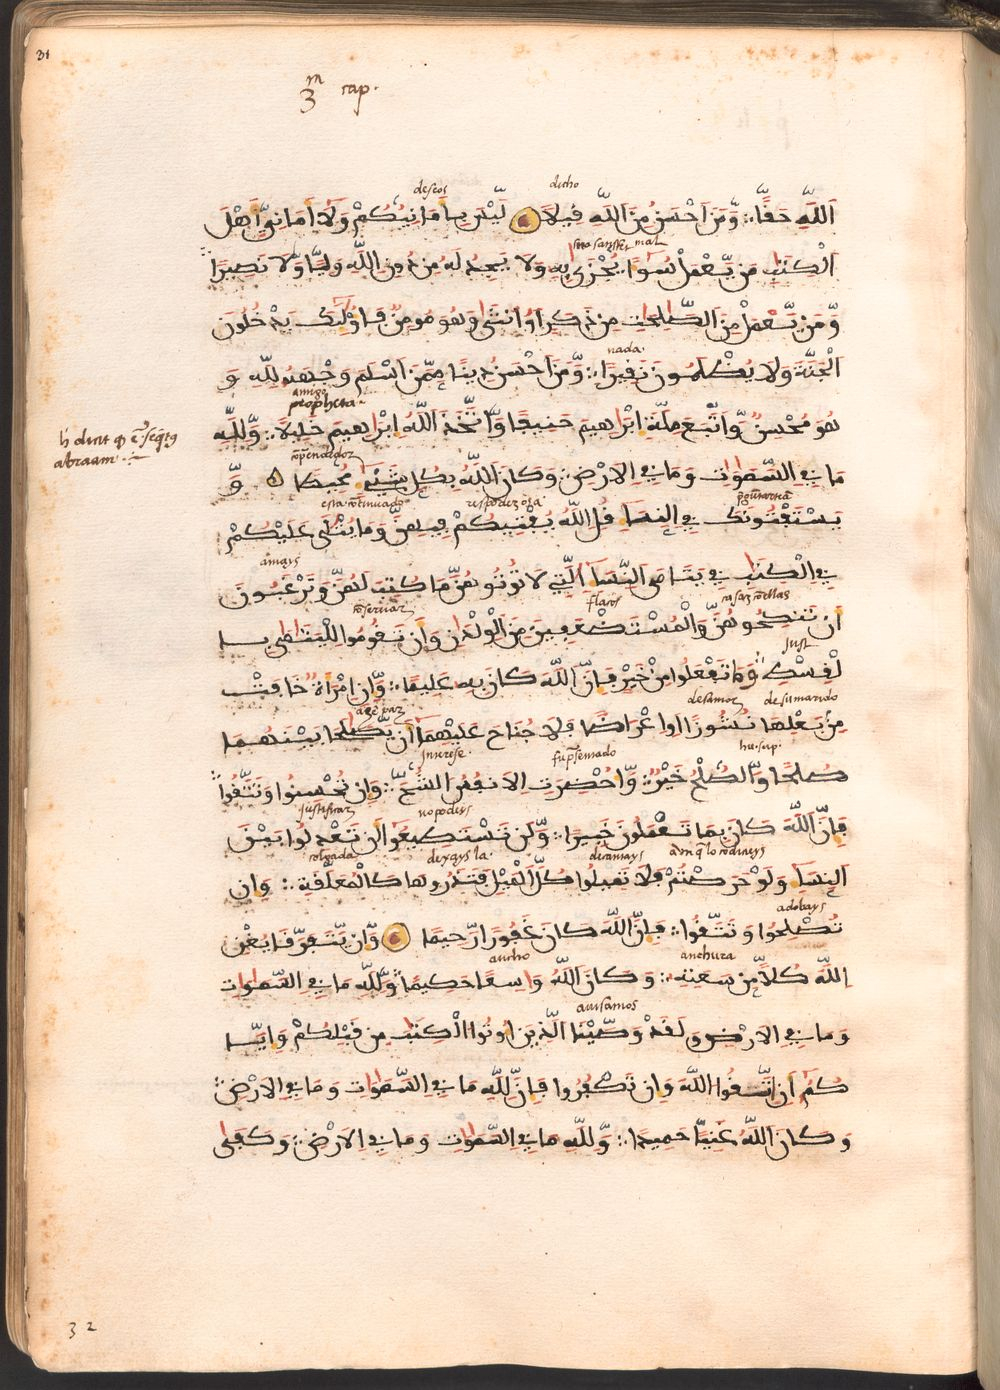 31
3m cap.
deseos dicho
اَللَّهِ حَقًّا وَّمَنَ اَحْسَنُ مِنَ اَللَّهِ قِيلًا لَّيْسَ بِأَمَانِيِّكُمْ وَلَآ أَمَانِيِّ أَهْلِ
mal
اَلْكِتَٰبِ مَنْ يَّعْمَلْ سُوٓءًا يُجْزَ بِهِ وَلَا يَجِدْ لَهُ مِن دُونِ اِللَّهِ وَلِيًّا وَلَا نَصِيرًا
وَّمَنْ يَّعْمَلْ مِنَ اَلصَّٰلِحَٰتِ مِن ذَكَرٍ اَوُ انثَىٰ وَهُوَ مُومِنٌ فَأُوْلَٰٓئِكَ يَدْخُلُونَ
nada
اَلْجَنَّةَ وَلَا يُظْلَمُونَ نَقِيرًا وَّمَنَ اَحْسَنُ دِينًا مِّمَّنَ اَسْلَمَ وَجْهَهُ لِلَّهِ وَ
amigo
propheta
هُوَ مُحْسِنٌ وَّاتَّبَعَ مِلَّةَ إِبْرَٰهِيمَ حَنِيفًا وَّاتَّخَذَ اَللَّهُ إِبْرَٰهِيمَ خَلِيلًا وَّلِلَّهِ
abraam
مَا فِي اِلسَّمَٰوَٰتِ وَمَا فِي اِلَارْضِ وَكَانَ اَللَّهُ بِكُلِّ شَيْءٍ مُّحِيطًا وَّ
esta continuado
يَسْتَفْتُونَكَ فِي اِلنِّسَآءِ قُلِ اِللَّهُ يُفْتِيكُمْ فِيهِنَّ وَمَا يُتْلَىٰ عَلَيْكُمْ
amays
فِي اِلْكِتَٰبِ فِي يَتَٰمَى اَلنِّسَآءِ اِلَّٰتِي لَا تُوتُونَهُنَّ مَا كُتِبَ لَهُنَّ وَتَرْغَبُونَ
flacos
أَن تَنكِحُوهُنَّ وَالْمُسْتَضْعَفِينَ مِنَ اَلْوِلْدَٰنِ وَأَن تَقُومُوا لِلْيَتَٰمَىٰ بِا
just
لْقِسْطِ وَمَا تَفْعَلُوا مِنْ خَيْرٍ فَإِنَّ اَللَّهَ كَانَ بِهِ عَلِيمًا وَّإِنِ اِمْرَأَةٌ خَافَتْ
desamor de su marido
مِنْ بَعْلِهَا نُشُوزًا اَوِ اعْرَاضًا فَلَا جُنَاحَ عَلَيْهِمَآ أَن يَّصَّٰلَحَا بَيْنَهُمَا
صُلْحًا وَّالصُّلْحُ خَيْرٌ وَّأُحْضِرَتِ اِلَانفُسُ اُلشُّحَّ وَإِن تُحْسِنُوا وَتَتَّقُوا
justificar no podeys
فَإِنَّ اَللَّهَ كَانَ بِمَا تَعْمَلُونَ خَبِيرًا وَّلَن تَسْتَطِيعُوٓا أَن تَعْدِلُوا بَيْنَ
colgada dexays la
اَلنِّسَآءِ وَلَوْ حَرَصْتُمْ فَلَا تَمِيلُوا كُلَّ اَلْمَيْلِ فَتَذَرُوهَا كَالْمُعَلَّقَةِ وَإِن
adobays
تُصْلِحُوا وَتَتَّقُوا فَإِنَّ اَللَّهَ كَانَ غَفُورًا رَّحِيمًا وَّإِنْ يَّتَفَرَّقَا يُغْنِ
ancho anchura
اِللَّهُ كُلًّا مِّن سَعَتِهِ وَكَانَ اَللَّهُ وَٰسِعًا حَكِيمًا وَّلِلَّهِ مَا فِي اِلسَّمَٰوَٰتِ
auisamos
وَمَا فِي اِلَارْضِ وَلَقَدْ وَصَّيْنَا اَلَّذِينَ أُوتُوا اُلْكِتَٰبَ مِن قَبْلِكُمْ وَإِيَّا
كُمُ أَنِ اِتَّقُوا اُللَّهَ وَإِن تَكْفُرُوا فَإِنَّ لِلَّهِ مَا فِي اِلسَّمَٰوَٰتِ وَمَا فِي اِلَارْضِ
وَكَانَ اَللَّهُ غَنِيًّا حَمِيدًا وَّلِلَّهِ مَا فِي اِلسَّمَٰوَٰتِ وَمَا فِي اِلَارْضِ وَكَفَىٰ
32